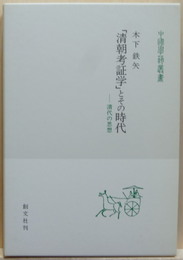 中国学芸叢書
木下鉄矢
「清朝考証学」とその時代
——清代の思想
創文社刊